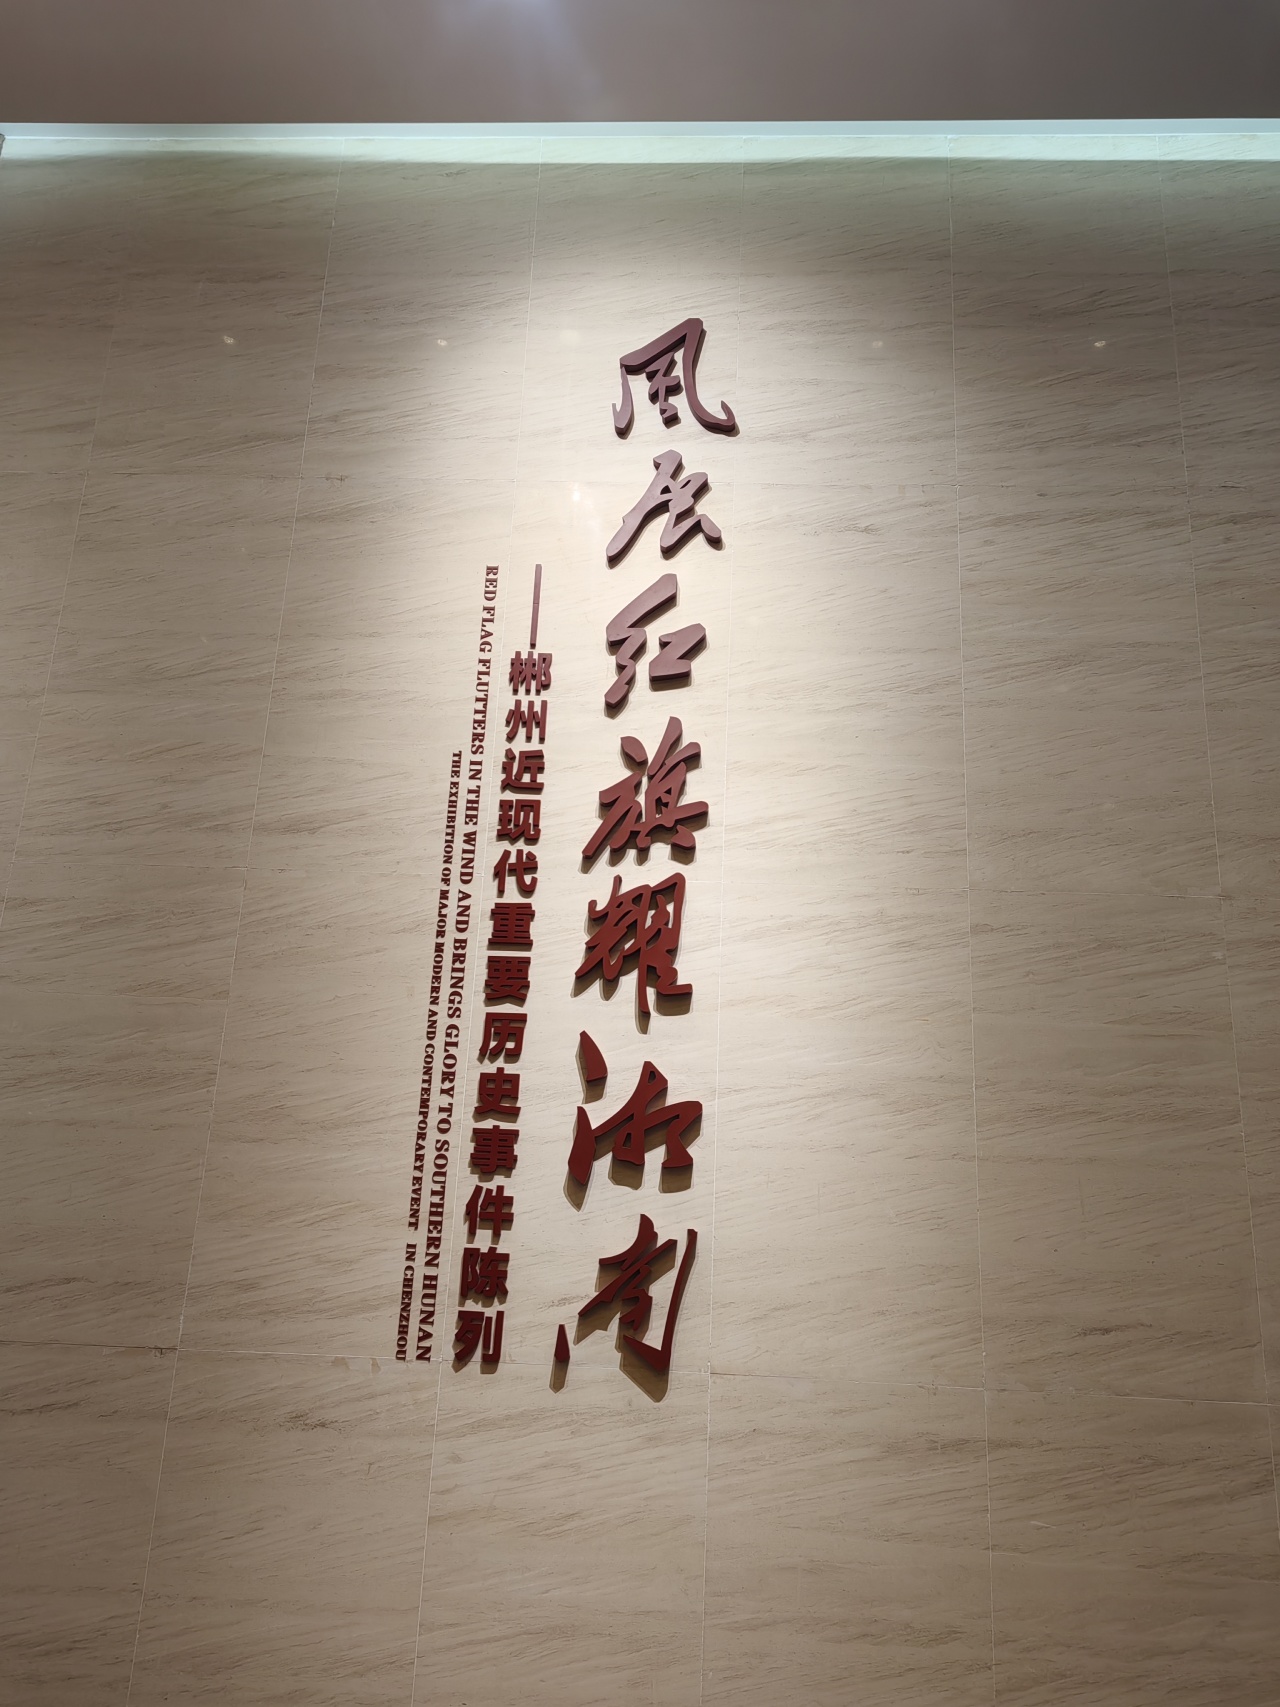 風展红旗耀湘南
——郴州近现代重要历史事件陈列
RED FLAG FLUTTERS IN THE WIND AND BRINGS GLORY TO SOUTHERN HUNAN
THE EXHIBITION OF MAJOR MODERN AND CONTEMPORARY EVENT IN CHENZHOU